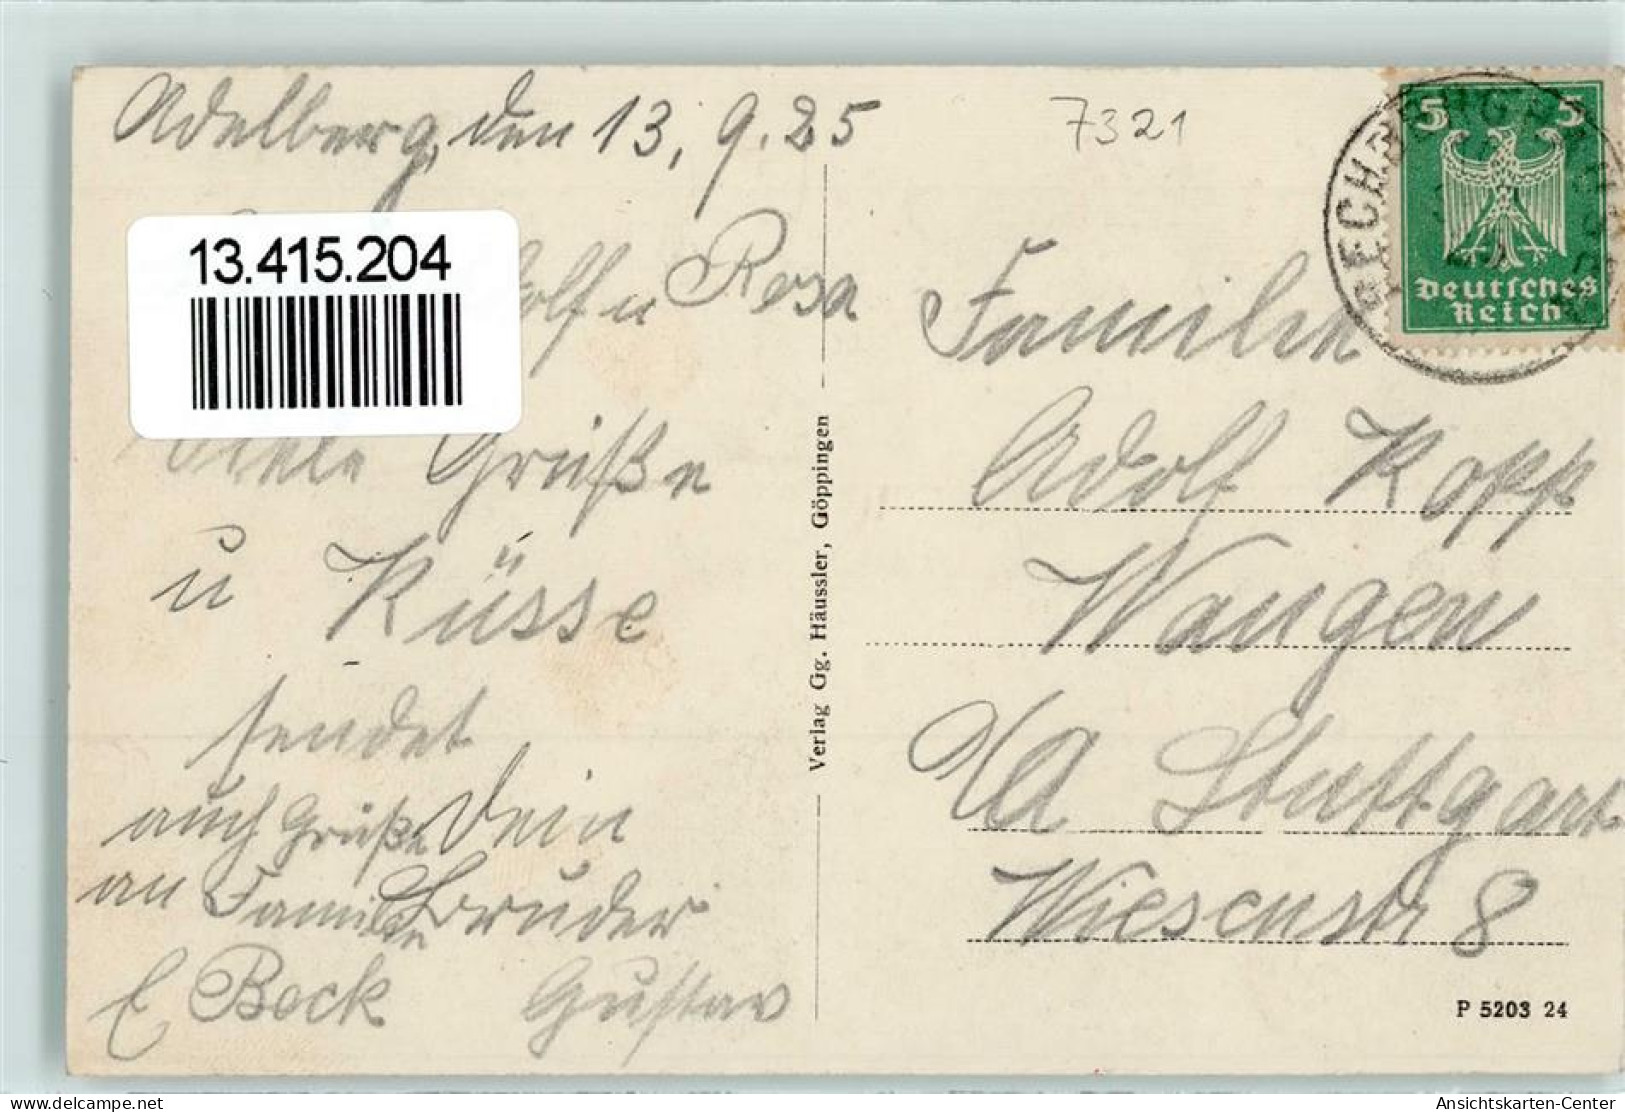 Adelberg, den 13. 9. 25
7321
13.415.204
u Rosa
Viele Grüße
u Küsse
sendet
auch Grüße Dein
an Familie Bruder
E Bock Gustav
Verlag Gg. Häussler, Göppingen
5 5
Deutsches
Reich
Familie
Adolf Kopp
Wangen
O/A Stuttgart
Wiesenstr 8
P 5203 24
Ansichtskarten-Center
www.delcampe.net